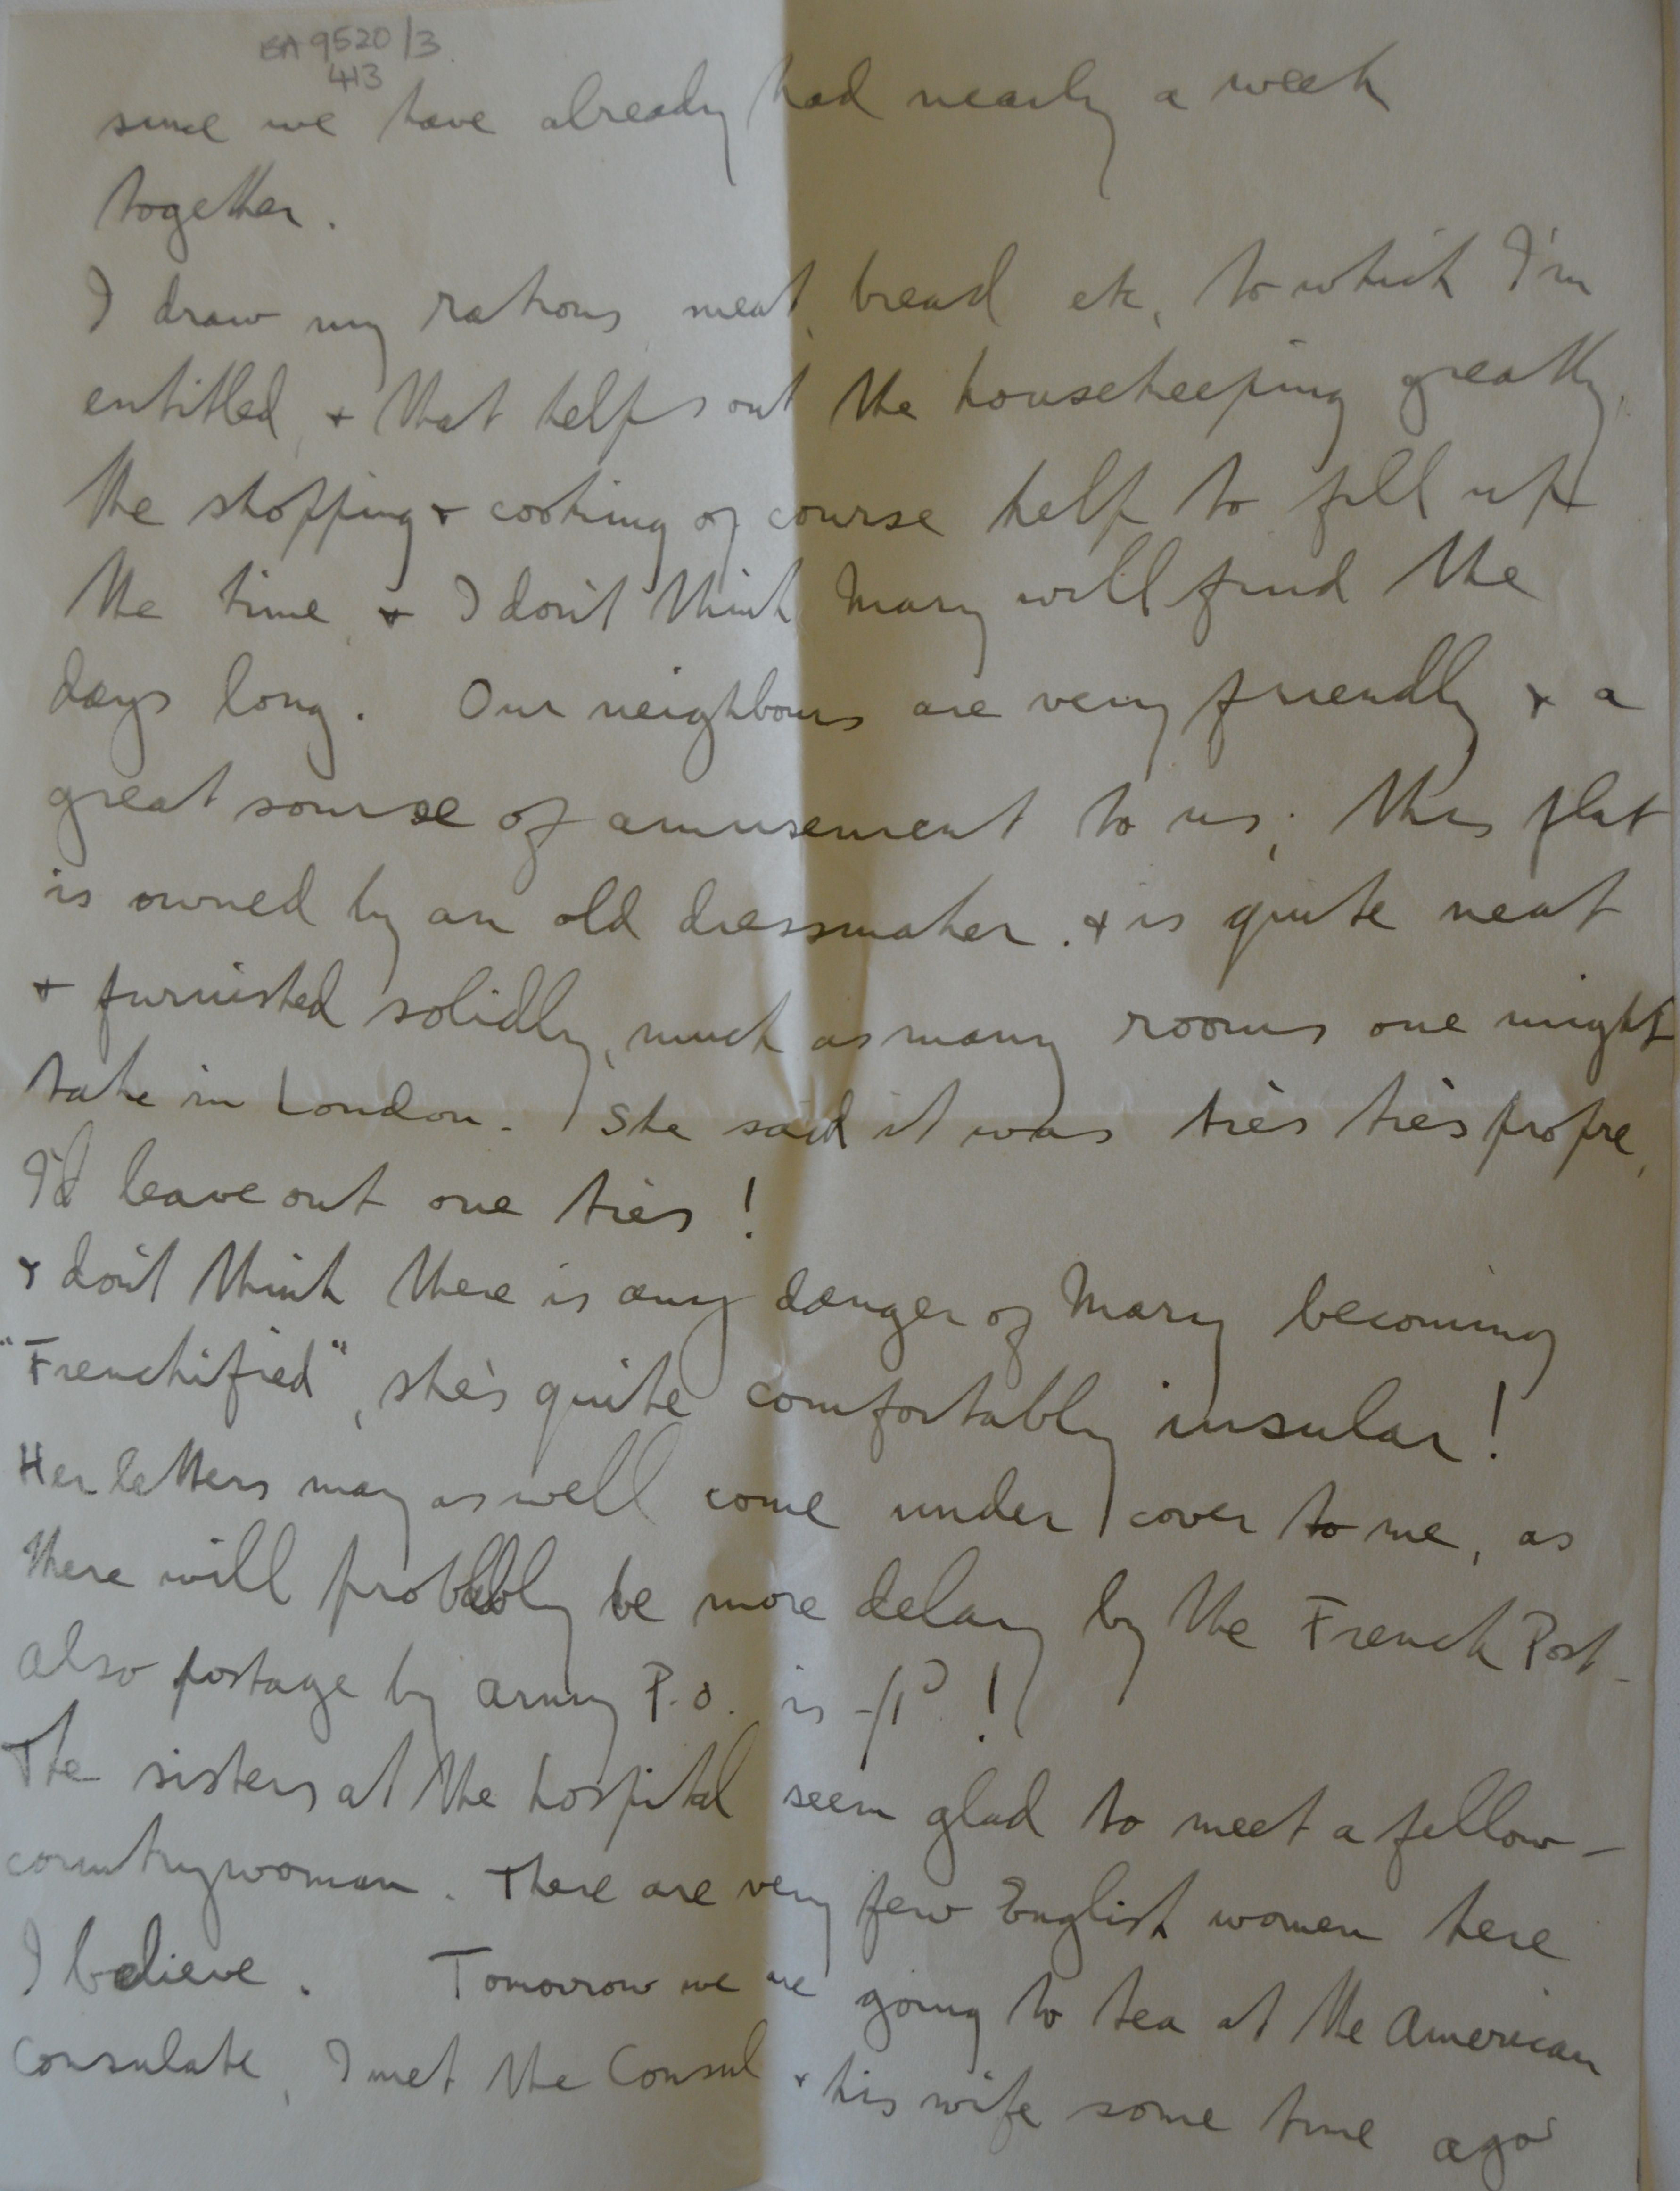 EA 9520/3
413
since we have already had nearly a week
together.
I draw my rations, meat, bread etc, to which I'm
entitled, + that helps out the housekeeping greatly,
the shopping + cooking of course help to fill up
the time, + I don't think Mary will find the
days long. Our neighbours are very friendly + a
great source of amusement to us; this flat
is owned by an old dressmaker. + is quite neat
+ furnished solidly, much as many rooms one might
take in London. She said it was très très propre,
I'd leave out one très!
I don't think there is any danger of Mary becoming
"Frenchified", she's quite comfortably insular!
Her letters may as well come under cover to me, as
there will probably be more delay by the French Post -
also postage by army P.O. is -/1D!
The sisters at the hospital seem glad to meet a fellow-
countrywoman. There are very few English women here
I believe. Tomorrow we are going to tea at the American
Consulate, I met the Consul + his wife some time ago